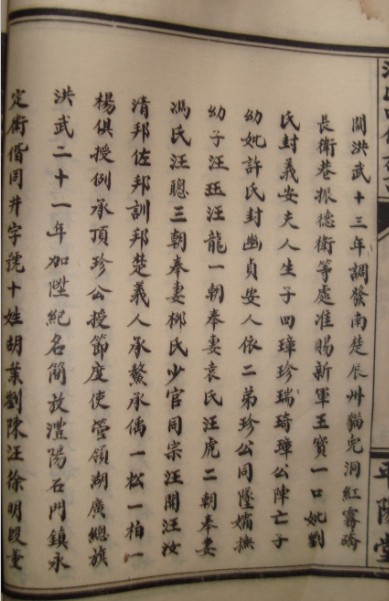 開洪武十三年調發南楚辰州貓兒洞紅霧磅
長衛巷振德衛等處准賜新軍五寶一口妣劉
氏封義安夫人生子四璋珍瑞琦璋公陣亡子
幼妣許氏封幽貞安人依二弟珍公同陞孀撫
幼子汪玨汪龍一朝奉妻袁氏汪虎二朝奉妻
馮氏汪聰三朝奉妻柳氏少官同宗汪開汪汝
清邦佐邦訓邦楚義人承鰲承一松一柏一
楊俱授例承頂珍公授節度使管領湖廣總旗
洪武二十一年加陞紀名簡放澧陽石門鎮永
定衛偕同井字號十姓胡葉劉陳汪徐明段董
平陽堂